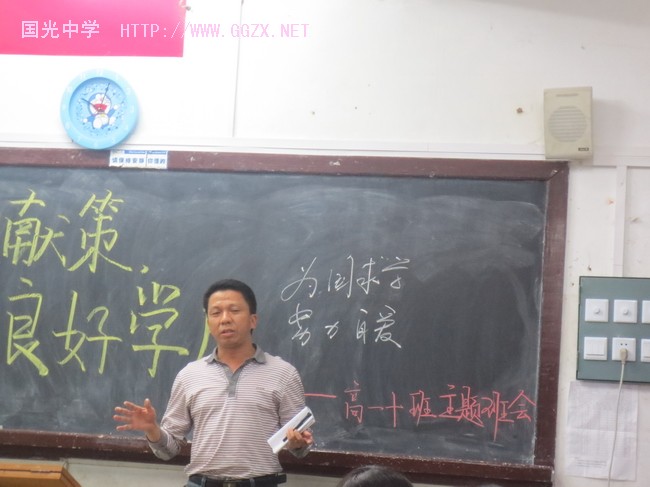 国光中学 HTTP://WWW.GGZX.NET
献策,
良好学
为国求学
努力自爱
——高一十班主题班会